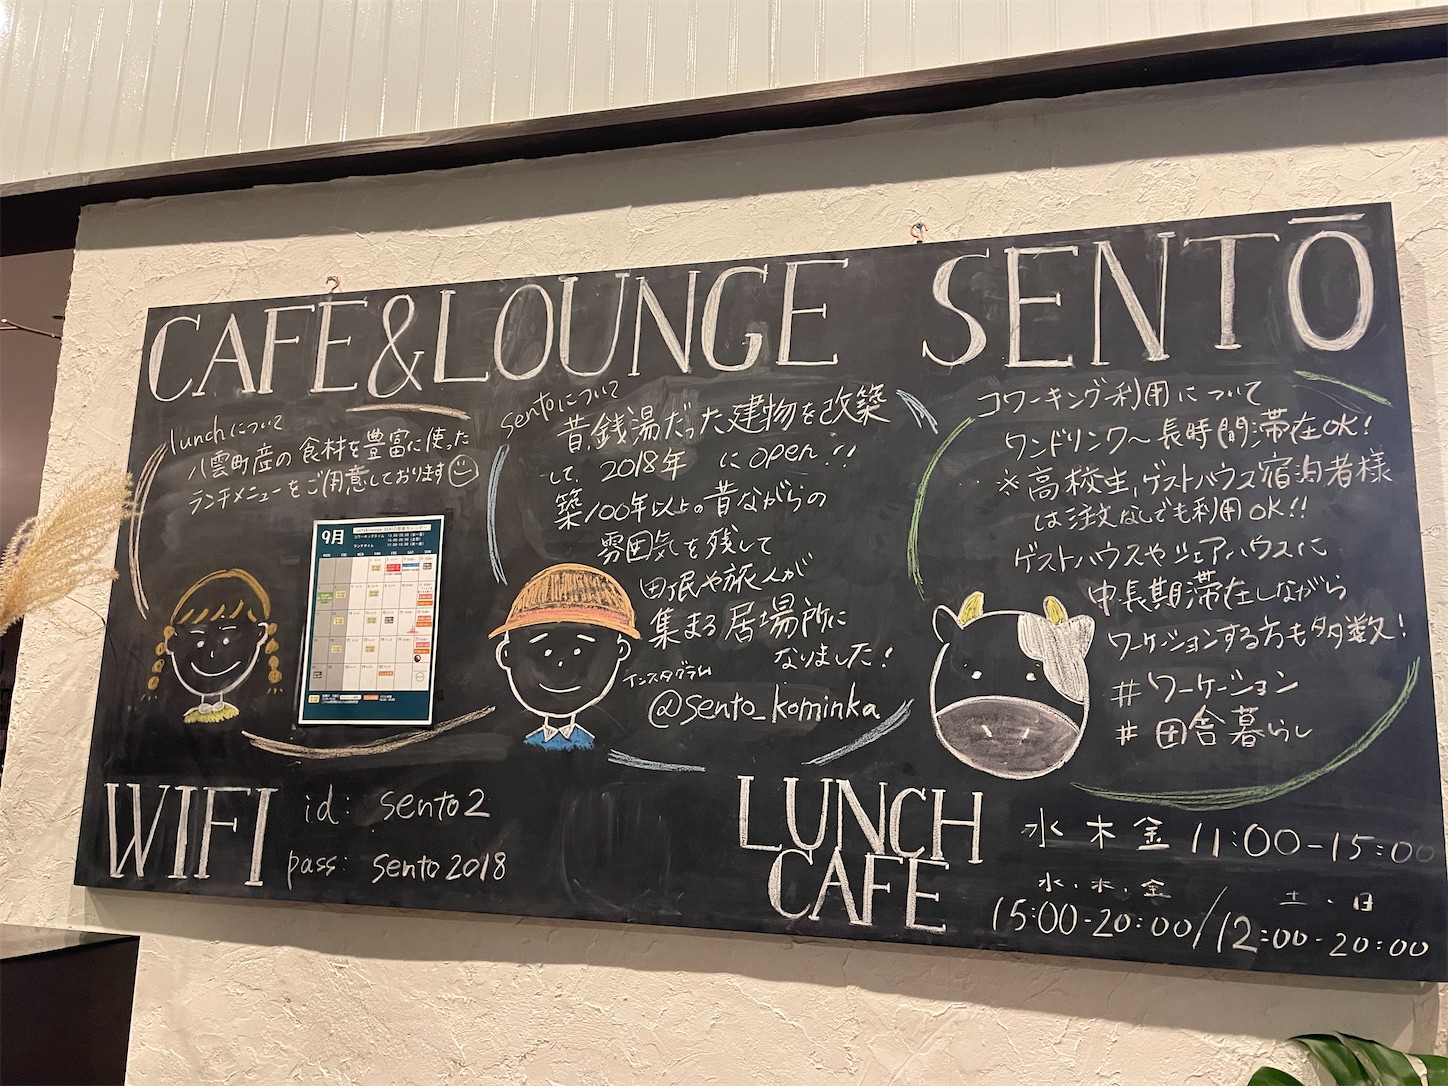 CAFE&LOUNGE SENTŌ
lunchについて
八雲町産の食材を豊富に使った
ランチメニューをご用意しております
9月
sentoについて
昔銭湯だった建物を改築
して、2018年 にopen!!
築100年以上の昔ながらの
雰囲気を残して
町民や旅人が
集まる居場所に
なりました!
インスタグラム
@sento_kominka
コワーキング利用について
ワンドリンク〜長時間滞在OK!
※高校生、ゲストハウス宿泊者様
は注文なしでも利用OK!!
ゲストハウスやシェアハウスに
中長期滞在しながら
ワーケーションする方も多数!
#ワーケーション
#田舎暮らし
WIFI
id: sento2
pass: sento2018
LUNCH 水 木 金 11:00-15:00
CAFE 水・木・金 土・日
15:00-20:00/12:00-20:00